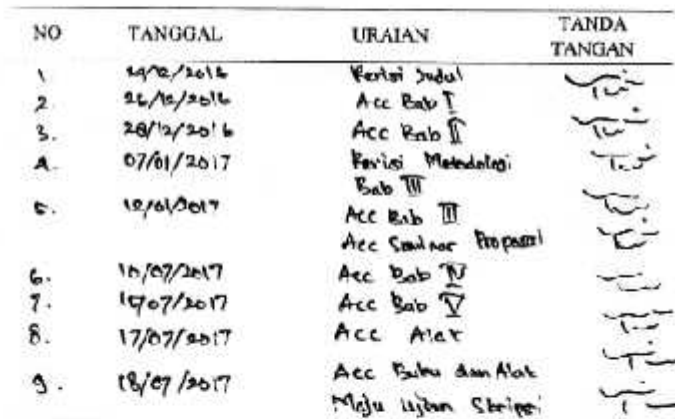 NO TANGGAL URAIAN TANDA TANGAN
1 Revisi Judul
2. 26/12/2016 Acc Bab I
3. 28/12/2016 Acc Bab II
4. 07/01/2017 Revisi Metodologi
Bab III
5. 12/01/2017 Acc Bab III
Acc Seminar Proposal
6. 10/07/2017 Acc Bab IV
7. /07/2017 Acc Bab V
8. 17/07/2017 Acc Alat
9. 18/07/2017 Acc Buku dan Alat
Maju Ujian Skripsi